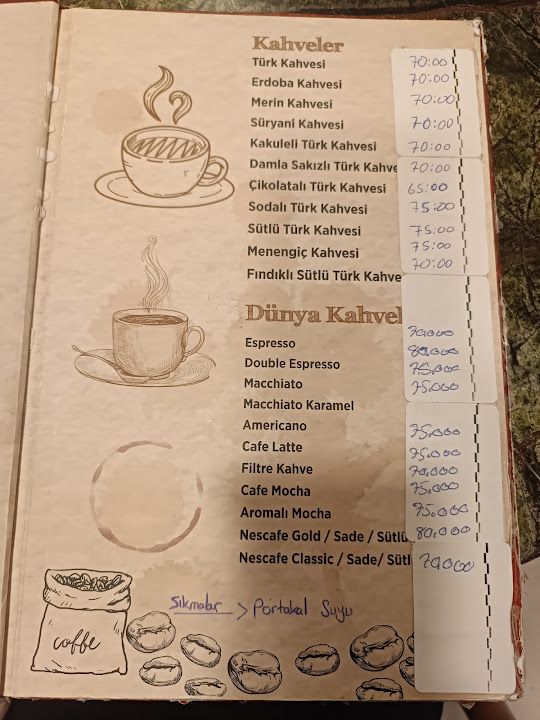 Kahveler
Türk Kahvesi 70:00
Erdoba Kahvesi 70:00
Merin Kahvesi 70:00
Süryani Kahvesi 70:00
Kakuleli Türk Kahvesi 70:00
Damla Sakızlı Türk Kahve 70:00
Çikolatalı Türk Kahvesi 65:00
Sodalı Türk Kahvesi 75:00
Sütlü Türk Kahvesi 75:00
Menengiç Kahvesi 75:00
Fındıklı Sütlü Türk Kahve 70:00
Dünya Kahvel
Espresso 70,000
Double Espresso 80,000
Macchiato 75,000
Macchiato Karamel 75,000
Americano 75,000
Cafe Latte 75,000
Filtre Kahve 70,000
Cafe Mocha 75,000
Aromalı Mocha 75,000
Nescafe Gold / Sade / Sütlü 80,000
Nescafe Classic / Sade/ Sütl 70,000
Sıkmalar > Portakal Suyu
coffe